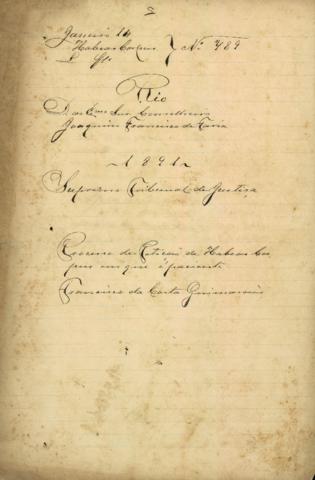 Janeiro 14
Habeas Corpus } Nº 489
Rio
D. ao Exmo Snr Conselheiro
Joaquim Francisco de Faria
1891
Supremo Tribunal de Justiça
Processo de Petição de Habeas Cor
pus em que é paciente
Francisco da Costa Guimarães